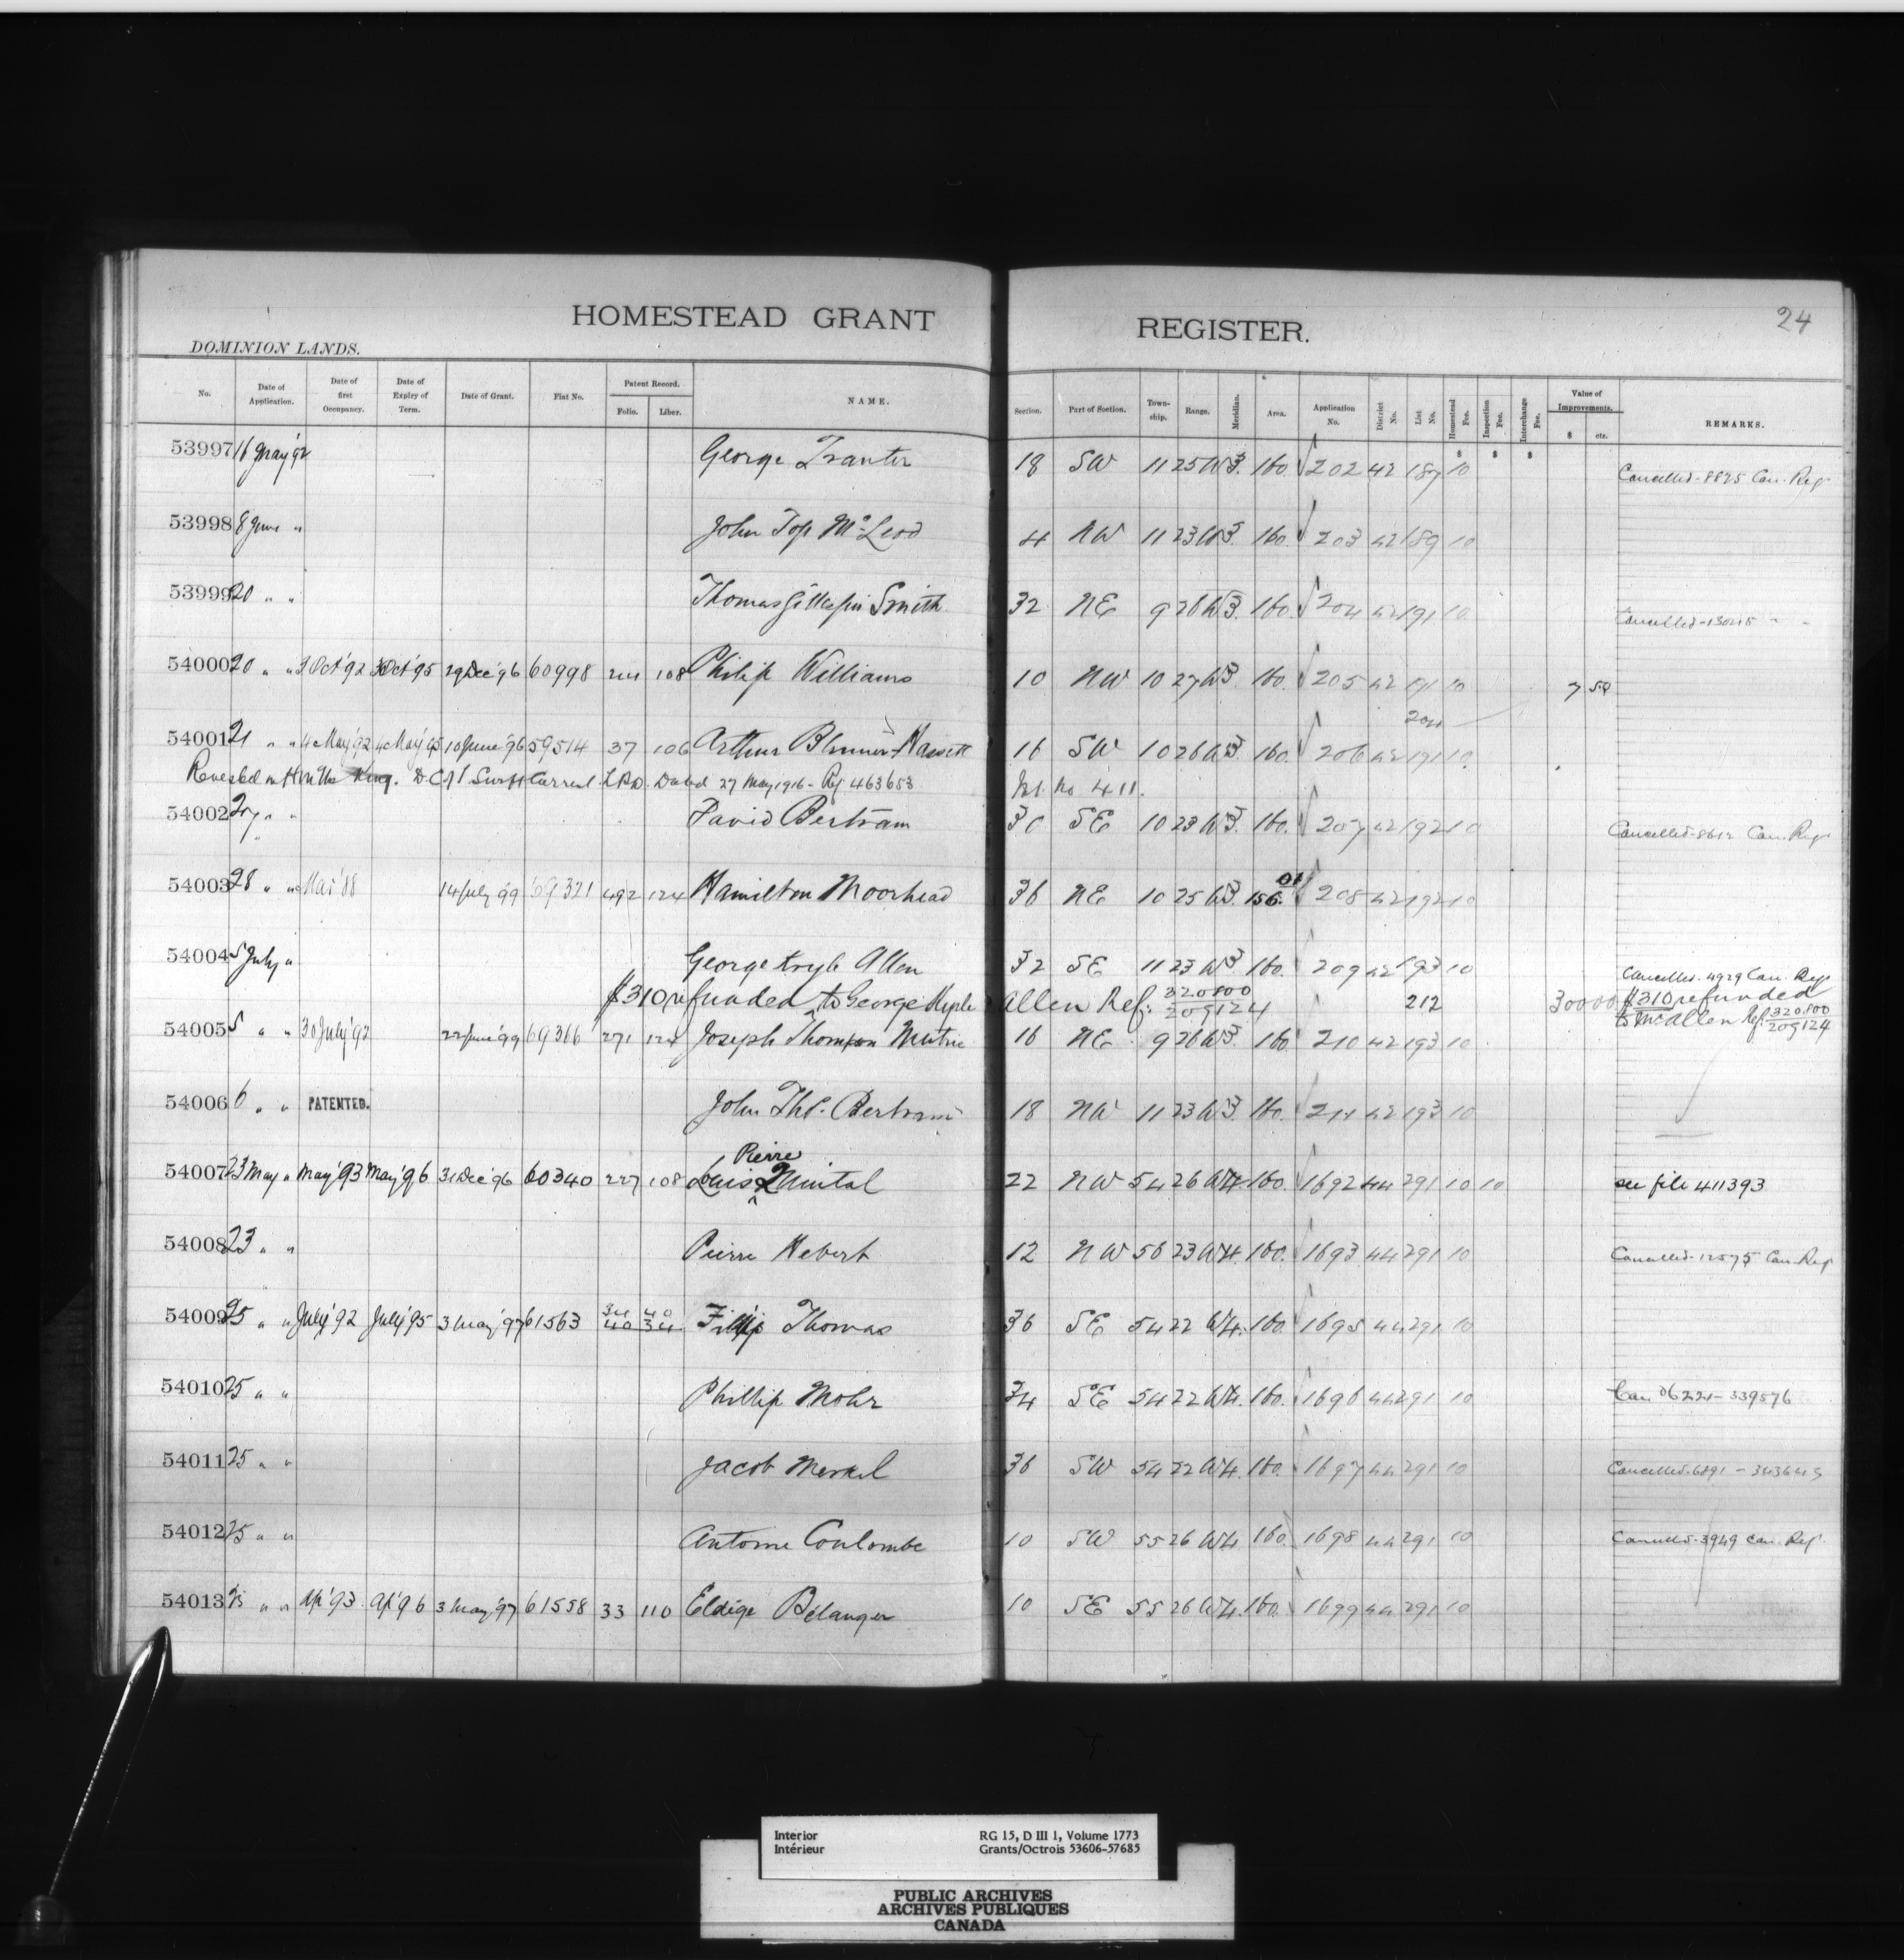 24
HOMESTEAD GRANT REGISTER.
DOMINION LANDS.
No. Date of Application. Date of first Occupancy. Date of Expiry of Term. Date of Grant. Fiat No. Patent Record. Folio. Liber. NAME. Section. Part of Section. Town-ship. Range. Meridian. Area. Application No. District No. List No. Homestead Fee. Inspection Fee. Interchange Fee. Value of Improvements. $ cts. REMARKS.
53997 16 May '92 George Tranter 18 SW 11 25 W3. 160. 202 42 187 10 Cancelled - 8825 Can. Reg.
53998 8 June " John Top McLeod 4 NW 11 23 W3. 160. 203 42 189 10
53999 20 " " Thomas Gillespie Smith 32 NE 9 26 W3. 160. 204 42 191 10 Cancelled - 13025 " "
54000 20 " " 3 Oct '92 3 Oct '95 29 Dec '96 60998 244 108 Philip Williams 10 NW 10 27 W3. 160. 205 42 191 10 7 50
204
54001 21 " " 4 May '92 4 May '95 10 June '96 59514 37 106 Arthur Blenner-Hassett 16 SW 10 26 W3. 160. 206 42 191 10
Revested in H.M. the King. D.C of Swift Current L.R.D. Dated 27 May 1916 - Ref 463653 No 411.
54002 27 " " David Bertram 30 SE 10 23 W3. 160. 207 42 192 10 Cancelled - 8612 Can. Reg.
54003 28 " " Mar '88 14 July 99 69321 492 124 Hamilton Moorhead 36 NE 10 25 W3. 156.01 208 42 192 10
54004 5 July " George Kryle Allen 32 SE 11 23 W3 160. 209 42 193 10 Cancelled - 4929 Can. Reg.
$310 refunded to George Kyle Allen Ref: 320800 205124 212 300 00 $310 refunded
to Mc Allen Ref 320800 205124
54005 5 " " 30 July '92 22 June '99 69366 271 124 Joseph Thomson Mutrie 16 NE 9 26 W3. 160 210 42 193 10
54006 6 " " PATENTED. John Thos. Bertram 18 NW 11 23 W3. 160. 211 42 193 10
54007 23 May " May '93 May '96 31 Dec '96 60340 227 108 Louis Pierre Quintal 22 NW 54 26 W4. 160. 1692 44 291 10 10 see file 411393
54008 23 " " Pierre Hebert 12 NW 56 23 W4. 160. 1693 44 291 10 Cancelled - 12575 Can. Reg.
54009 25 " " July '92 July '95 3 May '97 61563 34 40 40 34 Fillip Thomas 36 SE 54 22 W4. 160. 1695 44 291 10
54010 25 " " Phillip Mohr 34 SE 54 22 W4. 160. 1696 44 291 10 Can 06221 - 339576
54011 25 " " Jacob Merkel 36 SW 54 22 W4. 160. 1697 44 291 10 Cancelled - 6891 - 343643
54012 25 " " Antoine Coulombe 10 SW 55 26 W4. 160 1698 44 291 10 Cancelled - 3949 Can. Reg.
54013 25 " " Ap '93 Ap '96 3 May '97 61558 33 110 Eldège Bélanger 10 SE 55 26 W4. 160. 1699 44 291 10
Interior RG 15, D III 1, Volume 1773
Intérieur Grants/Octrois 53606-57685
PUBLIC ARCHIVES
ARCHIVES PUBLIQUES
CANADA